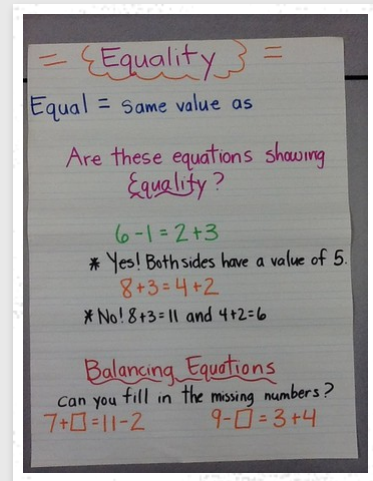 = {Equality} =
Equal = same value as
Are these equations showing
Equality?
6-1=2+3
* Yes! Both sides have a value of 5.
8+3=4+2
* No! 8+3=11 and 4+2=6
Balancing Equations
can you fill in the missing numbers?
7+□=11-2 9-□=3+4